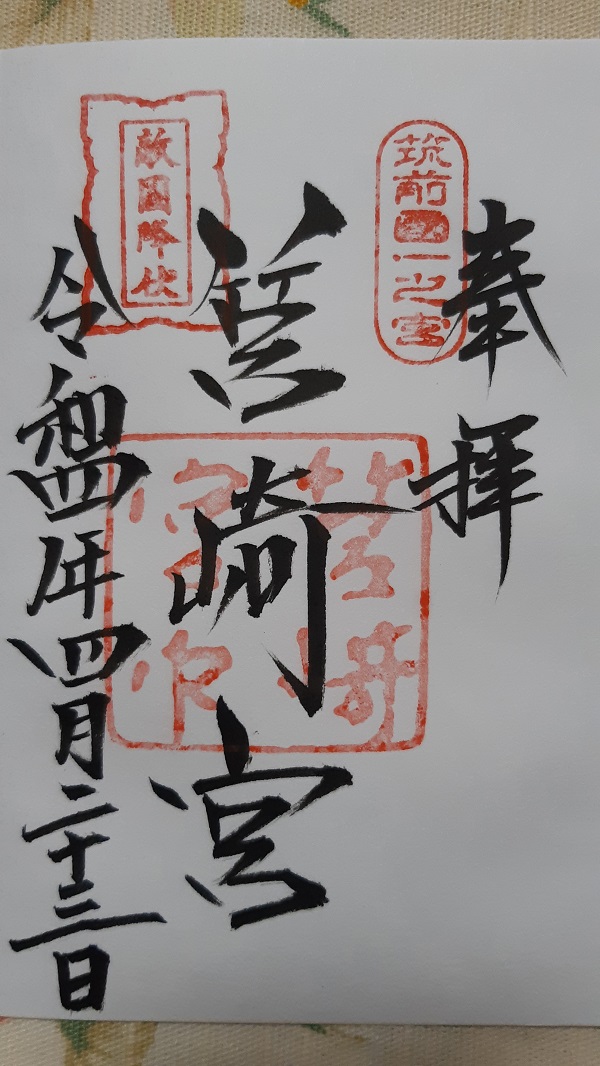 奉拝
筑前國一之宮
筥崎宮
敵国降伏
令和四年四月二十三日